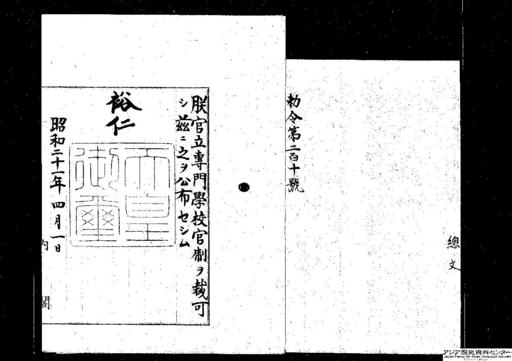 勅令第二百十號
總
文
朕官立專門學校官制ヲ裁可
シ茲ニ之ヲ公布セシム
裕仁
天皇
御璽
昭和二十一年四月一日
內閣
アジア歴史資料センター